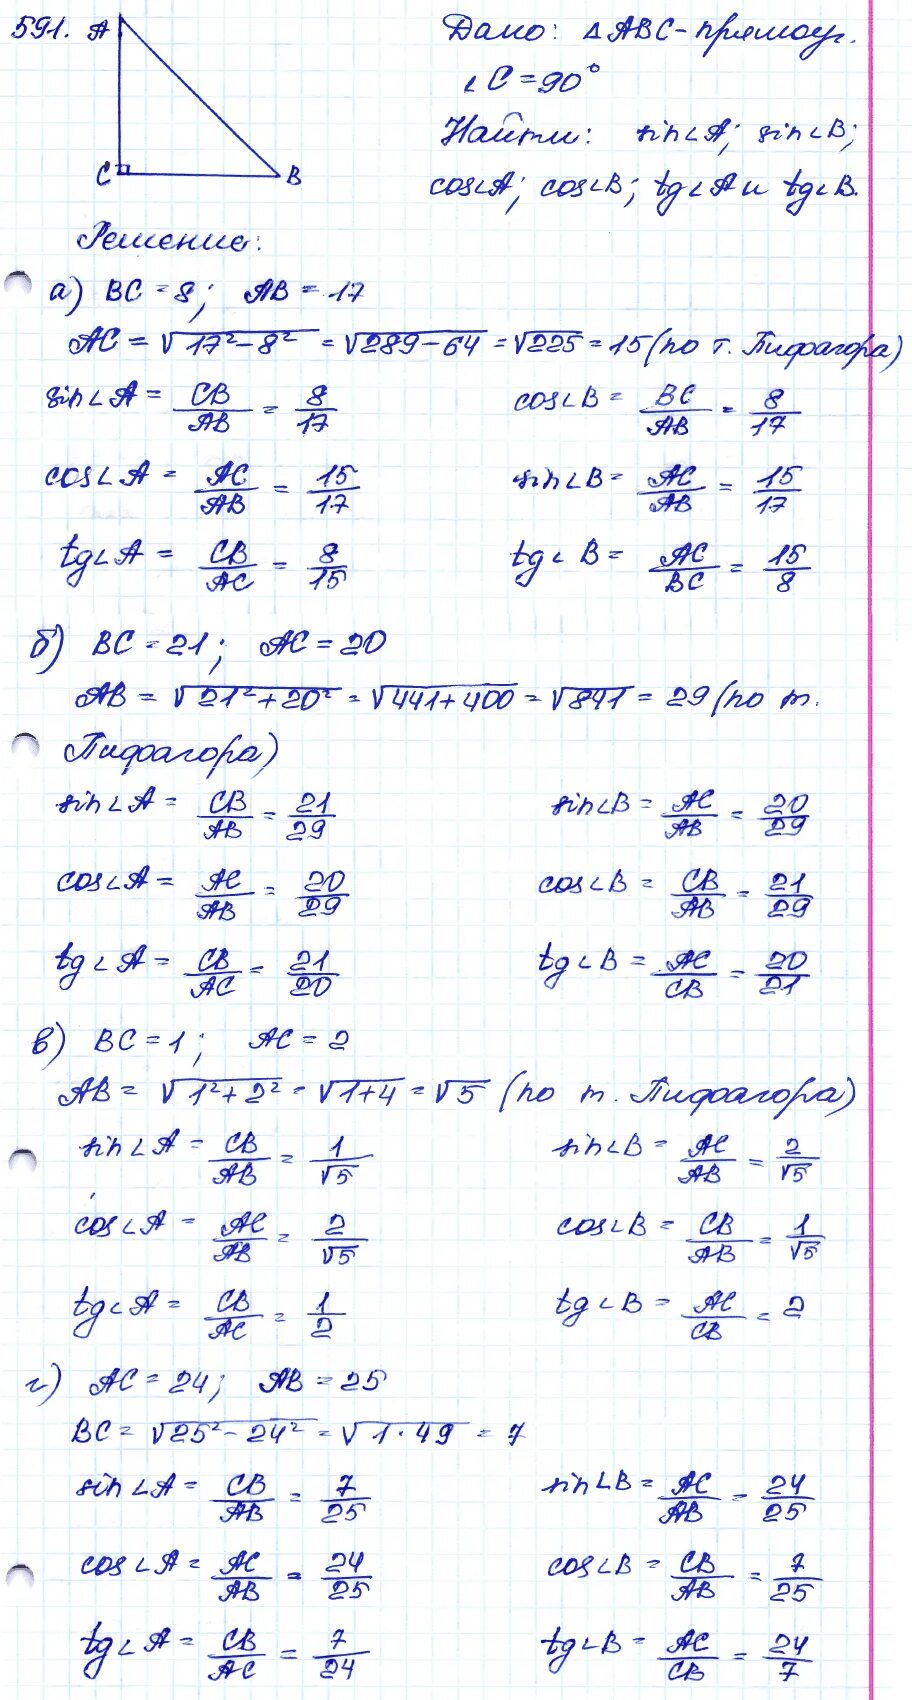 591. A
Дано: △ABC - прямоуг.
∠C = 90°
Найти: sin∠A; sin∠B;
C B
cos∠A; cos∠B; tg∠A и tg∠B.
Решение:
а) BC = 8; AB = 17
AC = √(17² - 8²) = √(289 - 64) = √225 = 15 (по т. Пифагора)
sin∠A = CB/AB = 8/17 cos∠B = BC/AB = 8/17
cos∠A = AC/AB = 15/17 sin∠B = AC/AB = 15/17
tg∠A = CB/AC = 8/15 tg∠B = AC/BC = 15/8
б) BC = 21; AC = 20
AB = √(21² + 20²) = √(441 + 400) = √841 = 29 (по т.
Пифагора)
sin∠A = CB/AB = 21/29 sin∠B = AC/AB = 20/29
cos∠A = AC/AB = 20/29 cos∠B = CB/AB = 21/29
tg∠A = CB/AC = 21/20 tg∠B = AC/CB = 20/21
в) BC = 1; AC = 2
AB = √(1² + 2²) = √(1 + 4) = √5 (по т. Пифагора)
sin∠A = CB/AB = 1/√5 sin∠B = AC/AB = 2/√5
cos∠A = AC/AB = 2/√5 cos∠B = CB/AB = 1/√5
tg∠A = CB/AC = 1/2 tg∠B = AC/CB = 2
г) AC = 24; AB = 25
BC = √(25² - 24²) = √(1 · 49) = 7
sin∠A = CB/AB = 7/25 sin∠B = AC/AB = 24/25
cos∠A = AC/AB = 24/25 cos∠B = CB/AB = 7/25
tg∠A = CB/AC = 7/24 tg∠B = AC/CB = 24/7